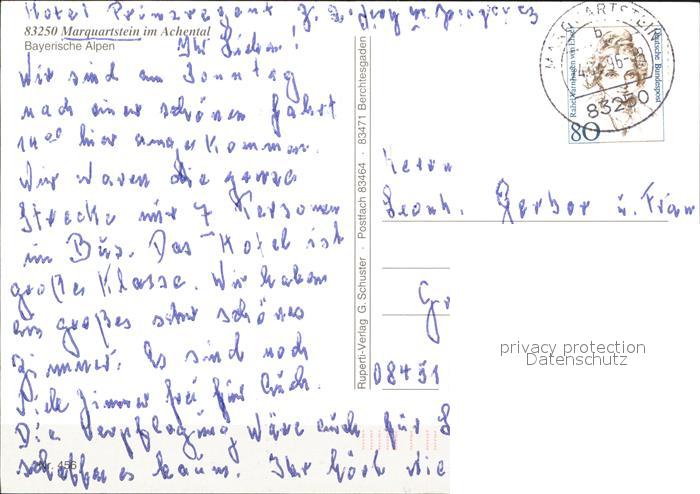 Hotel Prinzregent
83250 Marquartstein im Achental
Bayerische Alpen
Ihr Lieben!
Wir sind am Sonntag
nach einer schönen Fahrt
14⁰⁰ hier angekommen.
Wir waren die ganze
Strecke nur 7 Personen
im Bus. Das Hotel ist
große Klasse. Wir haben
ein großes sehr schönes
Zimmer. Es sind noch
viele Zimmer frei für Euch.
Die Verpflegung wäre auch für
schaffen es kaum. Ihr hört die
Nr. 456
Ruperti-Verlag G. Schuster · Postfach 83464 · 83471 Berchtesgaden
MARQUARTSTEIN
83250
Rahel Varnhagen von Ense
Deutsche Bundespost
80
Herrn
Leonh. Gerber u. Frau
Gr
08451
privacy protection
Datenschutz